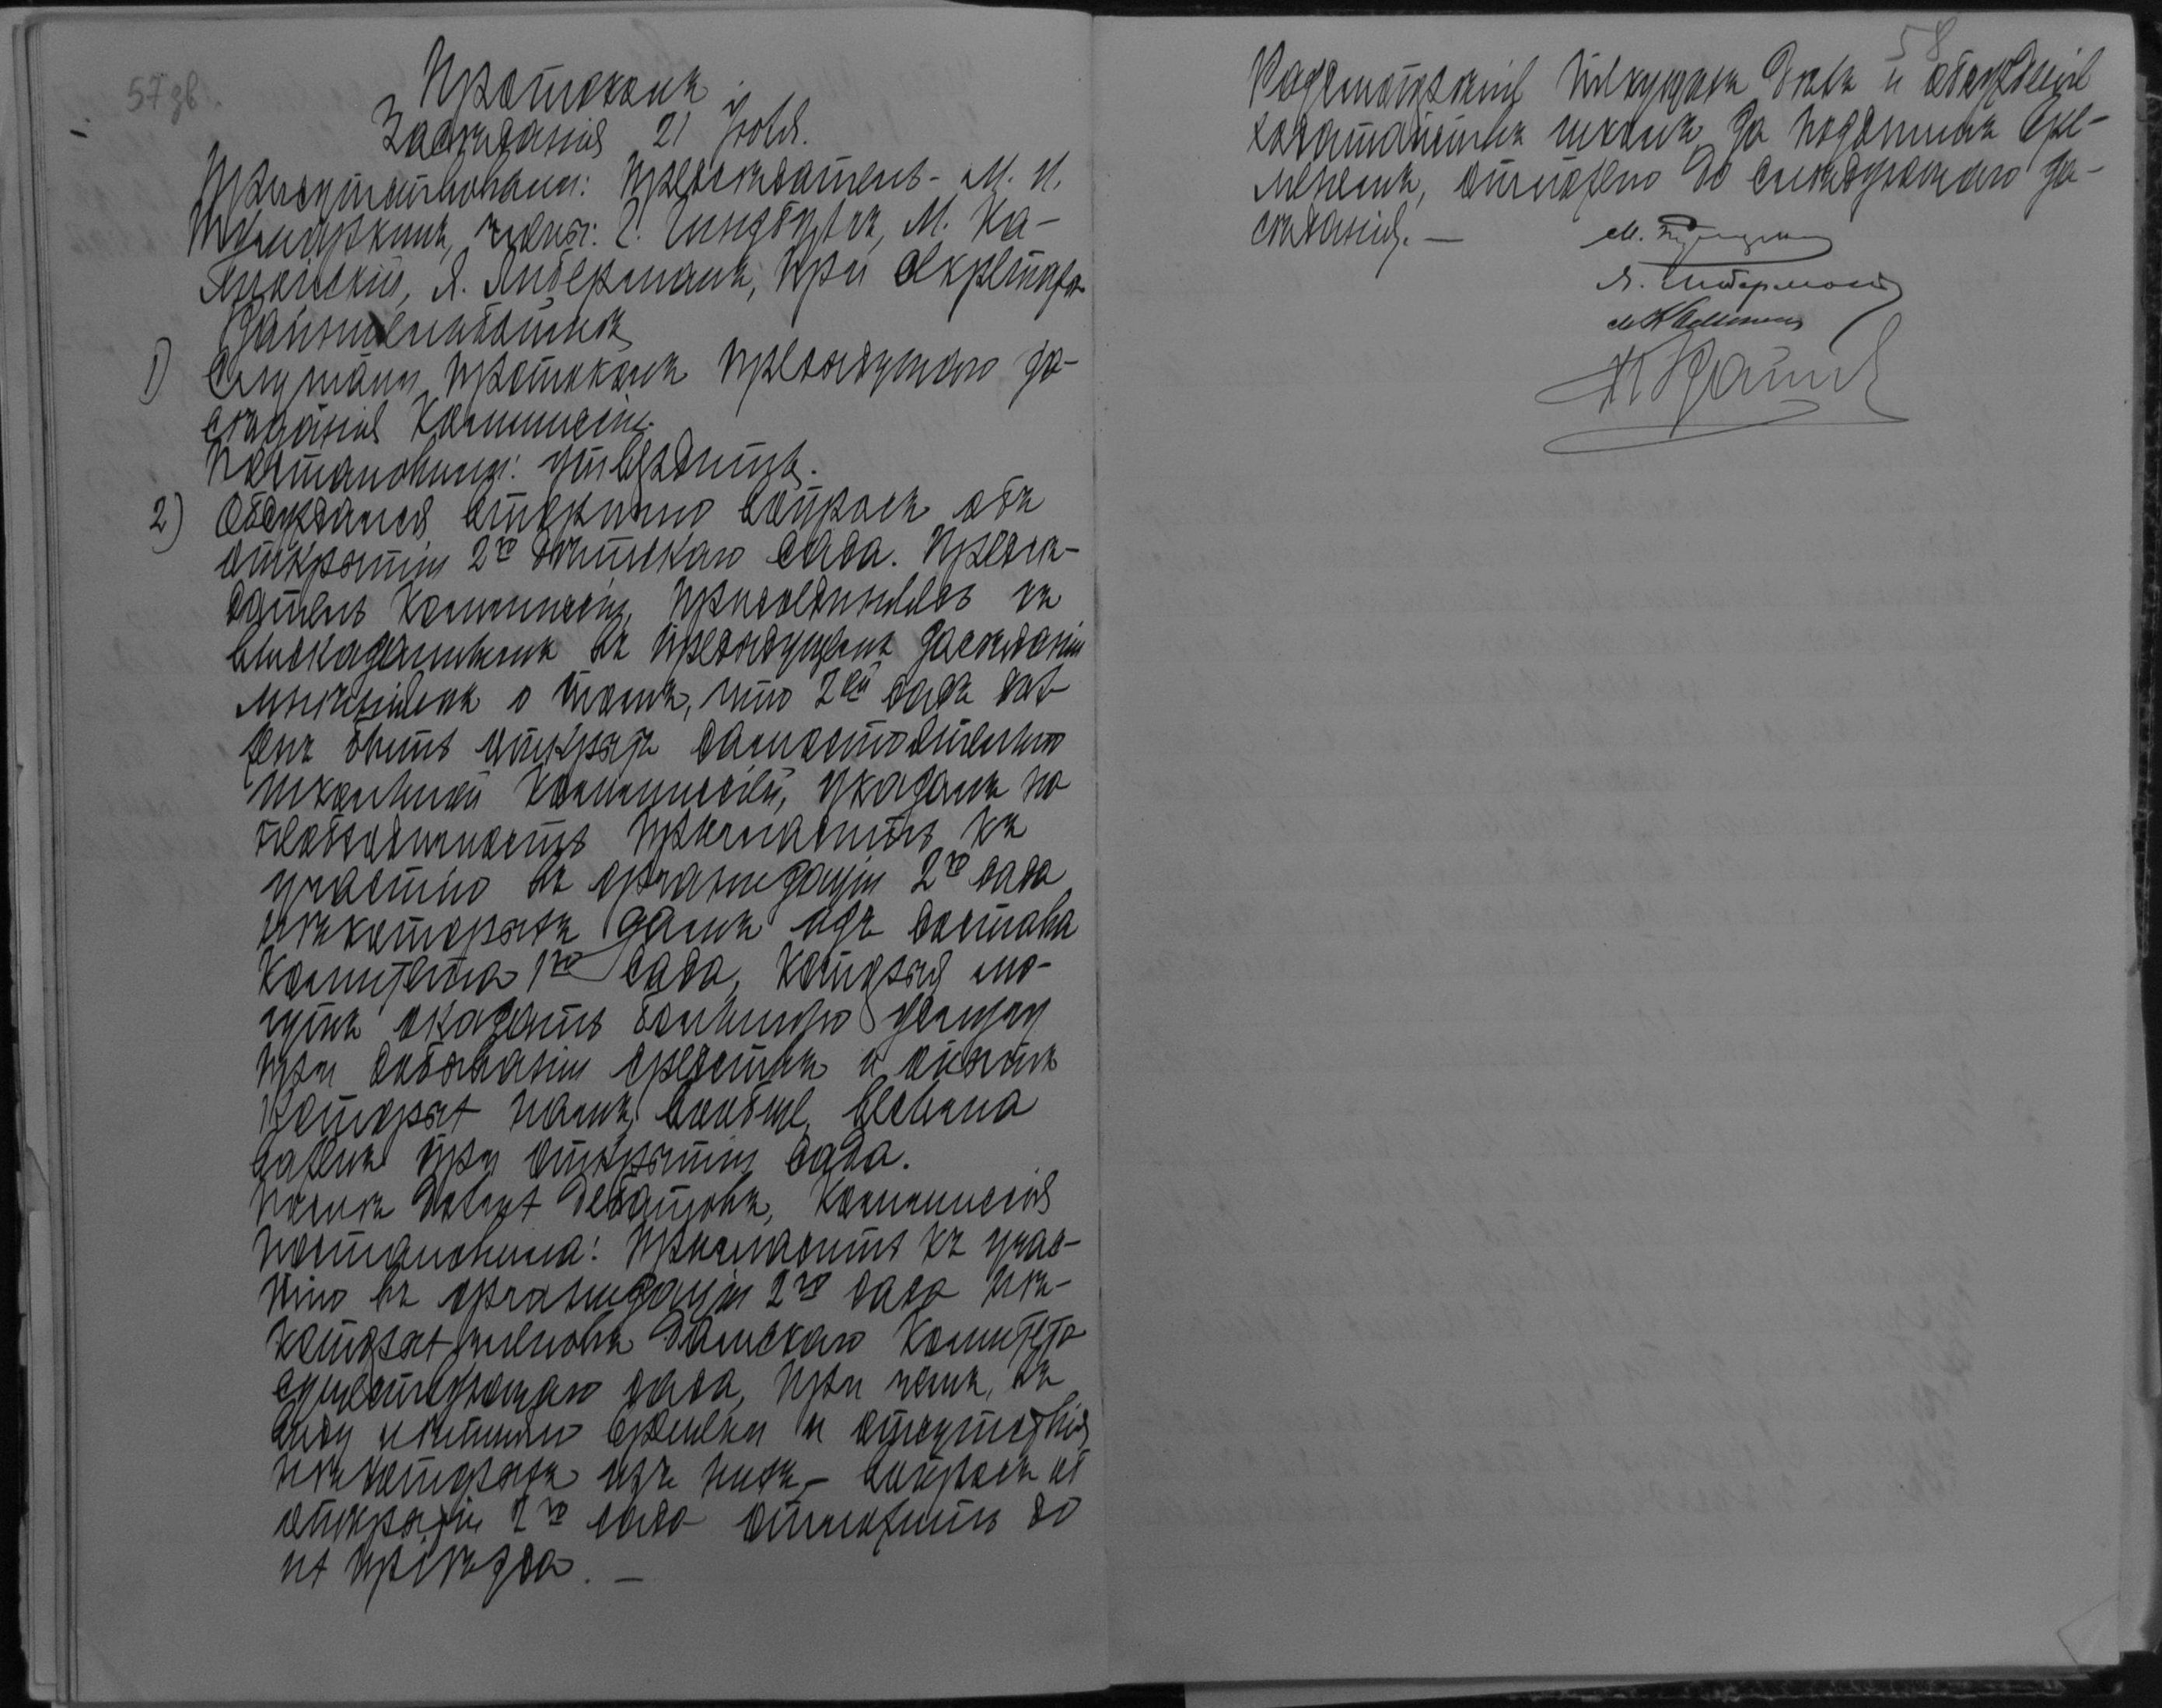 57 зв.
Протоколъ
Засѣданія 21 Iюля.
Присутствовали: Предсѣдатель - М. И.
члены: С. Гинзбургъ, М. Ка-
Я. Либерманъ, при секретарѣ
1) Слушали протоколъ предыдущаго за-
сѣданія Коммиссіи.
Постановили: утвердить.
2) Обсуждался вторично вопросъ объ
открытіи 2го дѣтскаго сада. Предсѣ-
датель Коммиссіи, присоединяясь къ
высказаннымъ въ предыдущемъ засѣданіи
мнѣніямъ о томъ, что 2ой садъ дол-
женъ быть открытъ самостоятельно
школьной Коммиссіей, указалъ на
необходимость пригласить къ
участію въ организаціи 2го сада
нѣкоторыхъ дамъ изъ состава
Комитета 1го сада, которыя мо-
гутъ оказать большую услугу
при добываніи средствъ и опытъ
которыхъ намъ, вообще, весьма
важенъ при открытіи сада.
Послѣ долгихъ дебатовъ, Коммиссія
постановила: пригласить къ учас-
тію въ организаціи 2го сада нѣ-
которыхъ членовъ Дамскаго Комитета
существующаго сада, при чемъ, въ
виду лѣтняго времени и отсутствія
нѣкоторыхъ изъ нихъ, - вопросъ объ
открытіи 2го сада отложить до
ихъ пріѣзда. —
58
Разсмотрѣніе текущихъ дѣлъ и обсужденіе
ходатайствъ школъ, за позднимъ вре-
менемъ, отложено до слѣдующаго за-
сѣданія. —
Я. Либерманъ